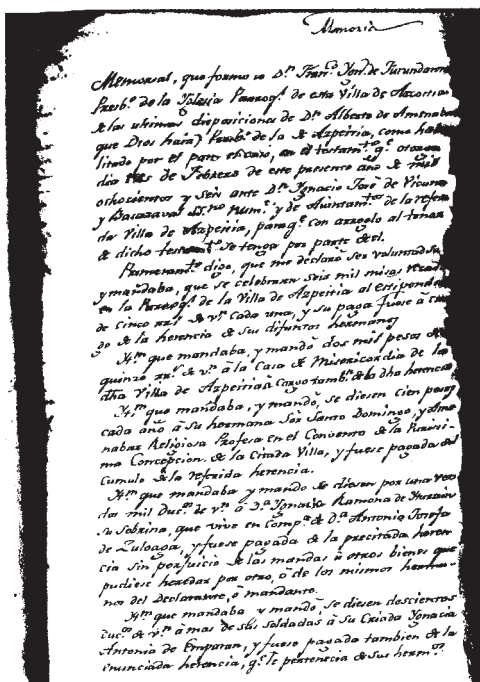 Memoria
Memorial, que formo yo Dn. Franco. Ygno. de Jurundarena
Presbo. de la Yglesia Parroql. de esta Villa de Azcoitia
de las ultimas disposiciones de Dn. Alberto de Amenabar
que Dios haia) Presbo. de la de Azpeitia, como
litado por el para el caso, en el testamto. qe. otorgó
dia tres de Febrero de este presente año de mil
ochocientos y seis ante Dn. Ygnacio José de Vicuna
y Bacarzaval Ssno. Numl. y de Aiuntamto. de la referi
da Villa de Azpeitia, para qe. con arreglo al tenor
de dicho testamto. se tenga por parte de el.
Primeramte. digo, que me declaró ser voluntad su
y mandaba, que se celebraran seis mil misas rezad
en la Parroql. de la Villa de Azpeitia al estipendio
de cinco rrs. de vn. cada una, y su paga fuese à car
go de la herencia de sus difuntos hermanos
Ytm. que mandaba, y mandó dos mil pesos de
quinze rrs. de vn. à la Casa de Misericordia de la
dha Villa de Azpeitia à cargo tambn. de la dha herencia
Ytm. que mandaba, y mandó, se diesen cien pesos
cada año à su hermana Sor Santo Domingo, y Ame
nabar Religiosa Profesa en el Convento de la Purisi
ma Concepcion de la Citada Villa, y fuese pagada del
cumulo de la referida herencia.
Ytm. que mandaba y mandó se diesen por una vez
dos mil Ducs. de vn. à Da. Ygnacia Ramona de
su Sobrina, que vive en Compa. de Da. Antonia Josefa
de Zuloaga, y fuese pagada de la precitada heren
cia sin perjuicio de las mandas ù otros bienes que
pudiese heredar por otro, ò de los mismos herma
nos del Declarante, o mandante.
Ytm. que mandaba y mandó, se diesen doscientos
Ducs. de vn. à mas de sus soldadas à su Criada Ygnacia
Antonia de Emparan, y fuese pagada tambien de la
enunciada herencia, qe. le pertenecia de sus hermos.